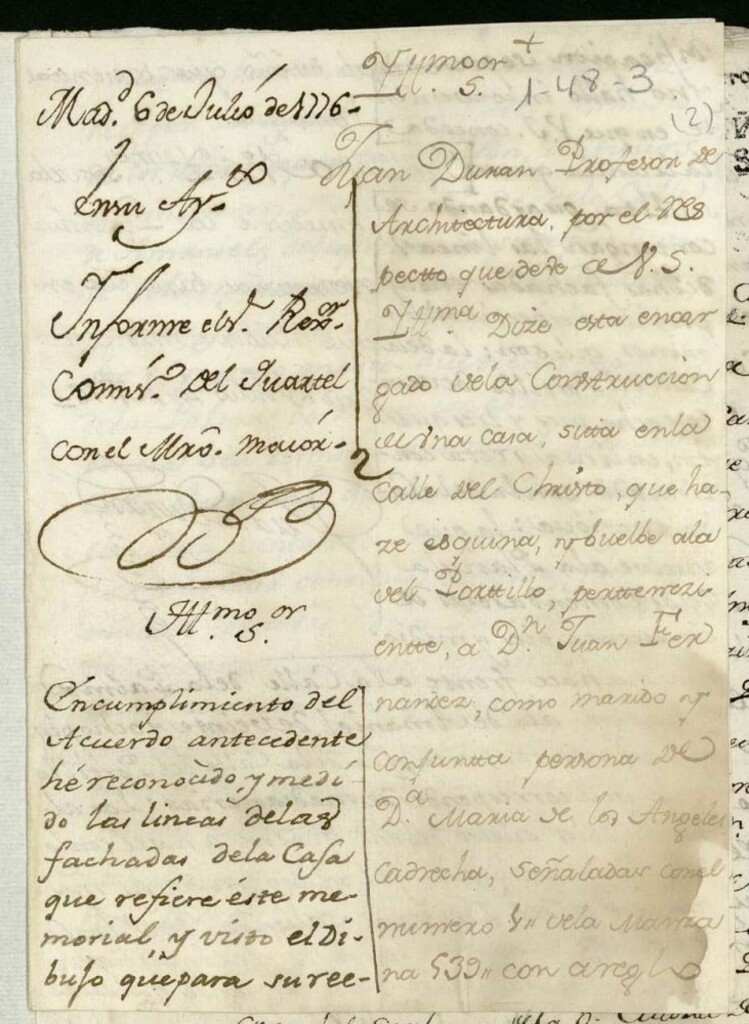 Yll.mo or
S.
1-48-3
(2)
Mad.d 6 de Julio de 1776-
En su Ay.to
Informe el S.r Rexor.
Comisr.o del Quartel
con el Mro. maior.
Yll.mo or
S.
En cumplimiento del
Acuerdo antecedente
hé reconocido, y medi-
do las lineas de las 2
fachadas de la Casa
que refiere éste me-
morial y visto el Di-
bujo que para su ree-
Juan Duran Profesor de
Architectura, por el res
pectto que deve a V. S.
Yll.ma Dize esta encar
gado de la Construccion
de una casa, sita en la
Calle del Christo, que ha-
ze esquina, y buelbe a la
del Porttillo, perttenezi
entte, a D.n Juan Fer
nandez, como marido y
conjuntta persona de
D.a Maria de los Angeles
Cadrecha, señaladas con el
numero 4,, de la Manza
na 539,, con areglo